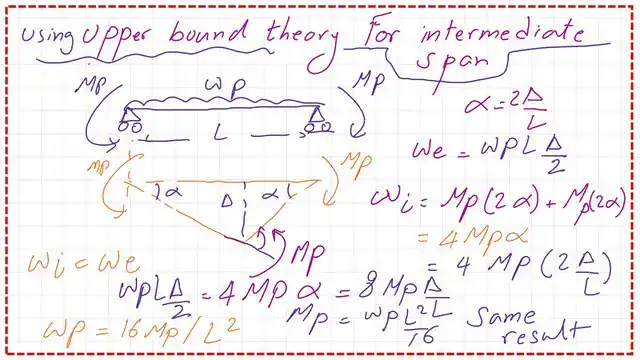 using Upper bound theory For intermediate
span
Mp wp Mp
L
α = 2Δ/L
We = wpL Δ/2
Mp α Δ α Mp
Wi = Mp(2α) + Mp(2α)
= 4Mpα
= 4 Mp (2Δ/L)
Mp
Wi = We
wpL Δ/2 = 4 Mp α = 8 Mp Δ/L
wp = 16 Mp / L²
Mp = wpL²/16 Same
result